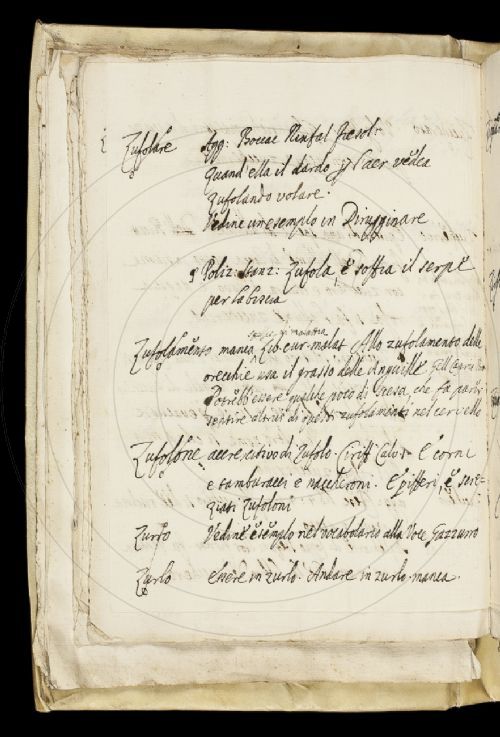 Zufolare Agg: Boccac Ninfal Fiesol:
Quand'ella il dardo p l'aer vedea
Zufolando volare.
Vedine un esempio in Diruginare
Poliz: stanz: Zufola, e soffia il serpe
per la biscia
spezie di malattia
Zufolamento manca, Lib. cur. malat. Allo zufolamento delle
orecchie usa il grasso delle Anguille
Potrebb'essere qualche poco di che fa parer
sentire di questi zufolamenti nel cervello
Zufolone accrescitivo di Zufolo. Ciriff. Calv. E corni
e tamburacci e naccheroni. E pifferi, e
Zufoloni
Zurro Vedine esemplo nel vocabolario alla Voce Gazzurro
Zurlo Essere in zurlo. Andare in zurlo. manca.